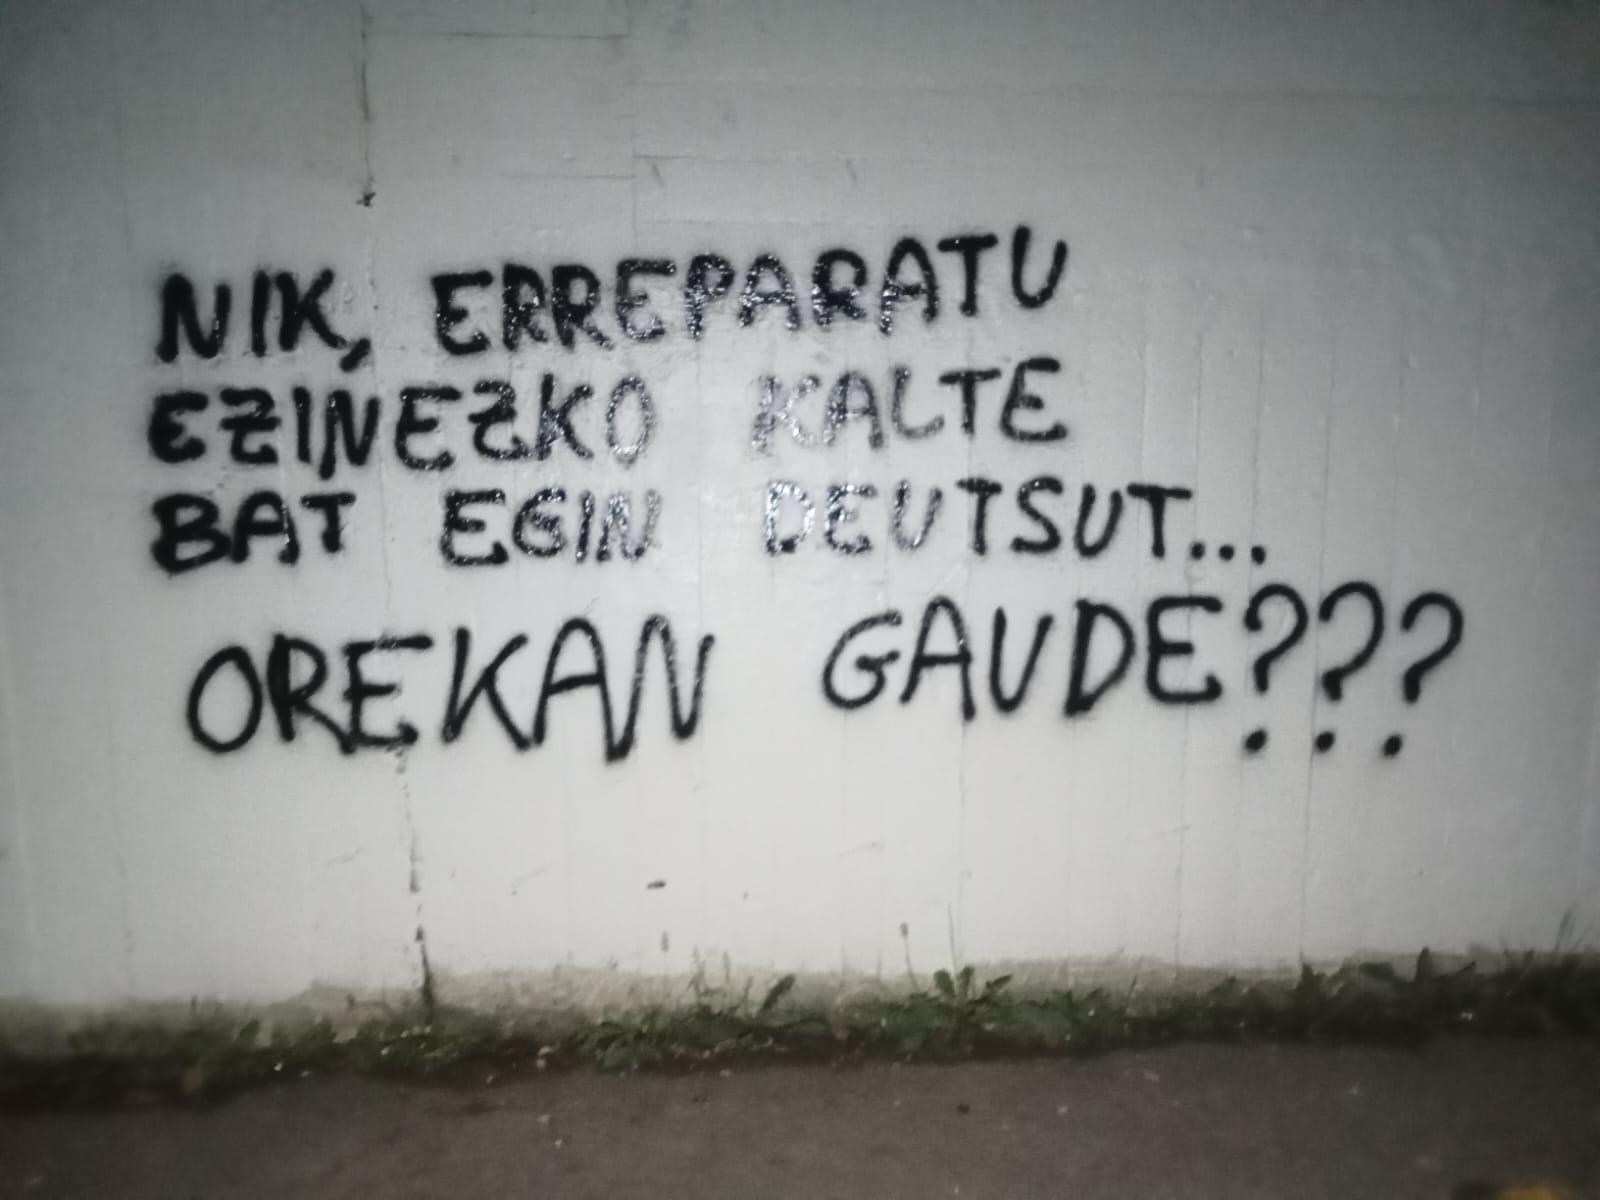 NIK, ERREPARATU
EZINEZKO KALTE
BAT EGIN DEUTSUT...
OREKAN GAUDE???